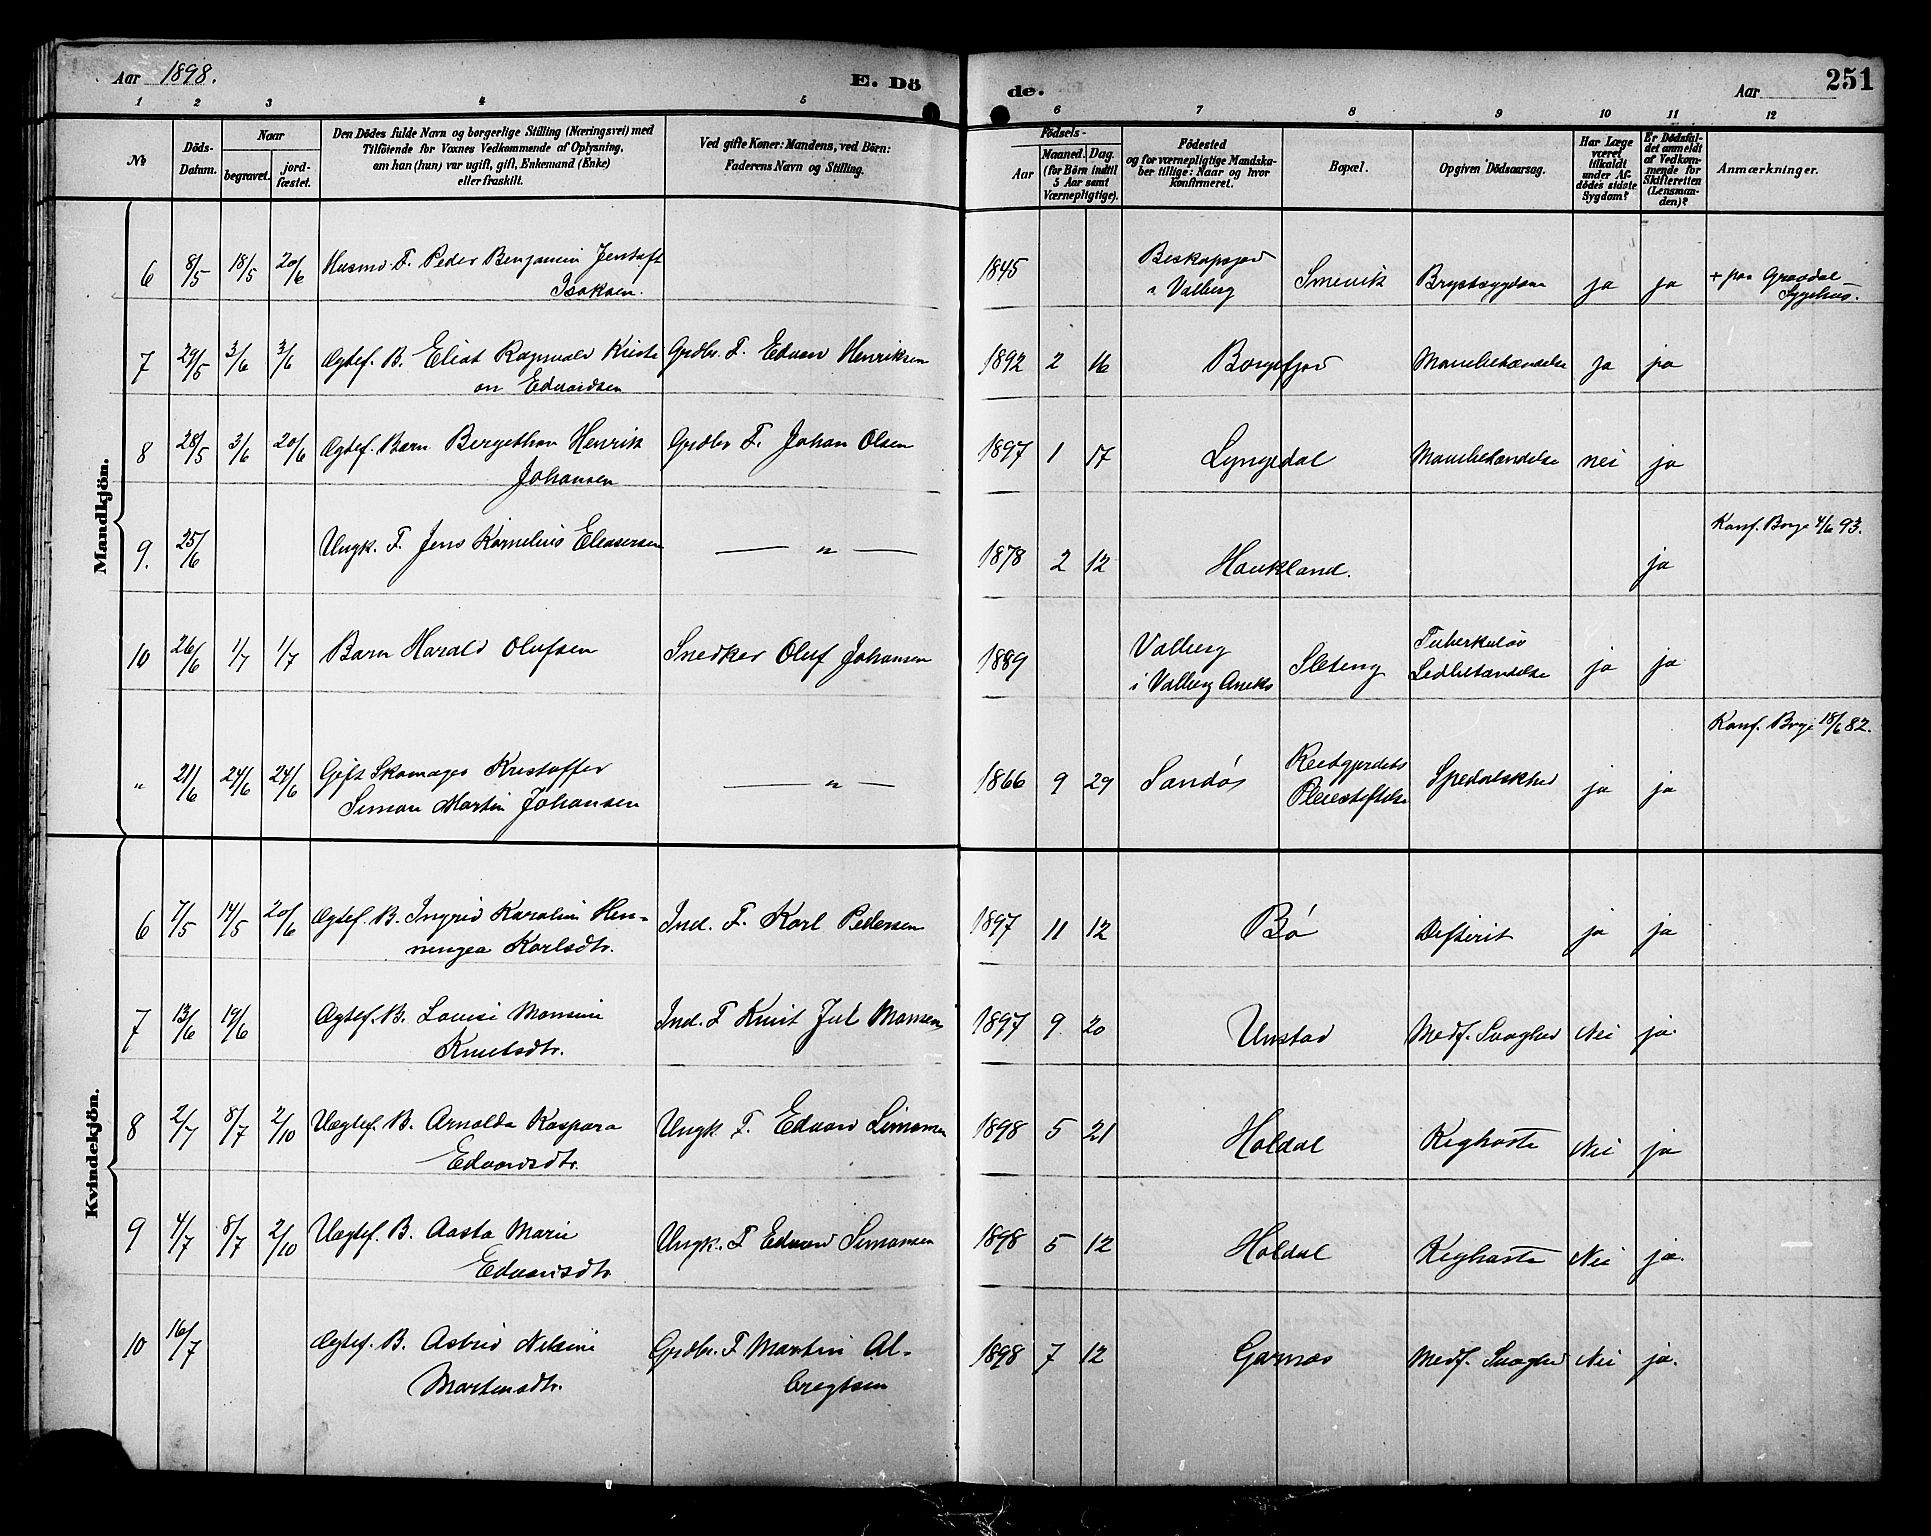 Aar 1898.
E. Dö
de.
Aar
251
1 2 3 4 5 6 7 8 9 10 11 12
No
Döds-
Datum.
Naar
begravet.
jord-
fæstet.
Den Dödes fulde Navn og borgerlige Stilling (Næringsvei) med
Tilföiende for Voxnes Vedkommende af Oplysning,
om han (hun) var ugift, gift, Enkemand (Enke)
eller fraskilt.
Ved gifte Koner: Mandens, ved Börn:
Faderens Navn og Stilling.
Födsels-
Aar
Maaned.
Dag.
(for Börn indtil
5 Aar samt
Værnepligtige).
Födested
og for værnepligtige Mandska-
ber tillige: Naar og hvor
konfirmeret.
Bopæl.
Opgiven Dödsaarsag.
Har Læge
været
tilkaldt
under Af-
dödes sidste
Sygdom?
Er Dödsfal-
det anmeldt
af Vedkom-
mende for
Skifteretten
(Lensman-
den)?
Anmærkninger.
Mandkjön.
6 8/5 18/5 20/6 Husmd. F. Peder Benjamin Jentoft
Isaksen.
1845
i Valberg
Smevik Brystsygdom ja ja + paa Gravdal
Sygehus.
7 29/5 3/6 3/6 Ægtef. B. Eliot Ragnvald Kristi
an Edvardsen
Grdbr. F. Edvard Henriksen 1892 2 16 Borgefjord Mavebetændelse ja ja
8 28/5 3/6 20/6 Ægtef. Barn Bergethon Henrik
Johansen
Grdbr F. Johan Olsen 1897 1 17 Lyngedal Mavebetændelse nei ja
9. 25/6 Ungk. F. Jens Kornelius Eleasersen — „ — 1878 2 12 Haukland. ja Konf. Borge 4/6 93.
10 26/6 1/7 1/7 Barn Harald Olufsen Snedker Oluf Johansen 1889 Valberg
i Valberg Aneks
Sleteng Tuberkuløs
Ledbetændelse
ja ja
„ 21/6 24/6 24/6 Gift Skomager Kristoffer
Simon Martin Johansen
— „ — 1866 9 29 Sandøs Reitgjerdets
Pleiestiftelse
Spedalskhed ja ja Konf. Borge 18/6 82.
Kvindekjön.
6 7/5 14/5 20/6 Ægtef. B. Ingrid Karoline Hen-
ningea Karlsdtr.
Ind. F. Karl Pedersen 1897 11 12 Bø Difterit ja ja
7 13/6 19/6 Ægtef. B. Louise Monsine
Knutsdtr.
Ind. F Knut Jul Monsen 1897 9 20 Unstad Medf. Svaghed Nei ja.
8 2/7 8/7 2/10 Uægtef. B. Arnolda Kaspara
Edvardsdtr.
Ungk. F. Edvard Simonsen 1898 5 21 Holdal Kighoste Nei ja
9 4/7 8/7 2/10 Uægtef. B. Aasta Marie
Edvardsdtr
Ungk. F Edvard Simonsen 1898 5 12 Holdal Kighoste Nei ja.
10 16/7 Ægtef. B. Astrid Nelsine
Martinsdtr.
Grdbr. F Martin Al-
bregtsen
1898 7 12 Garnæs Medf. Svaghed Nei ja.